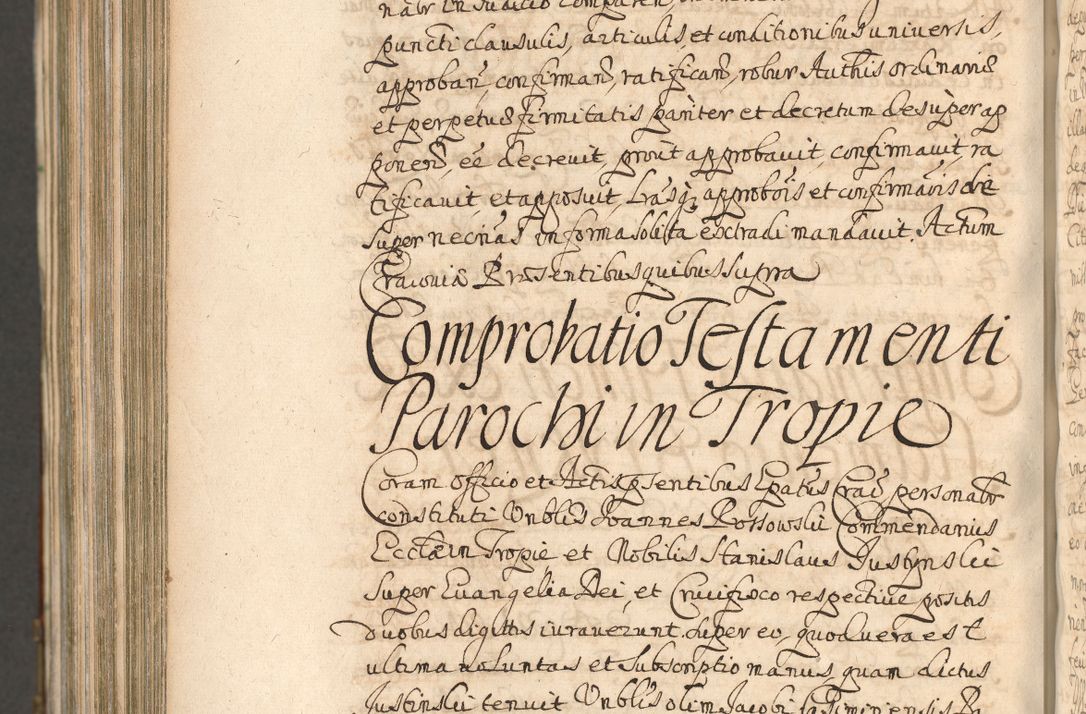 puncti clausulis, articulis, et conditionibus universis,
approban̄, confirman̄, ratifican̄, robur Auth̄is ordinariæ
et perpetuæ firmitatis pariter et decretum desuper ap
ponen̄, eē decrevit, prout approbavit, confirmavit, ra
tificavit, et apposuit, Lr̄asq; approbōis et confirmaōis de
super necr̄ias in forma solita extradi mandavit. Actum
Cracoviæ Præsentibus quibus supra
Comprobatio Testamenti
Parochi in Tropie
Coram officio et Actis pn̄tibus Ep̄atus Crac̄ personalr̄
constituti Vnblīs Joannes Rossowski Commendarius
Eccl̄æ in Tropie et Nobilis Stanislaus Justynski
super Euangelia Dei, et Crucifixo respective positis
duobus digitis iuraverunt. super eo, quod vera est
ultima voluntas et subscriptio manus, quam dictus
Justinski tenuit Vnblīs olim Jacobi